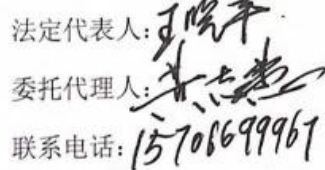 法定代表人:王晓平
委托代理人:
联系电话:15706699967